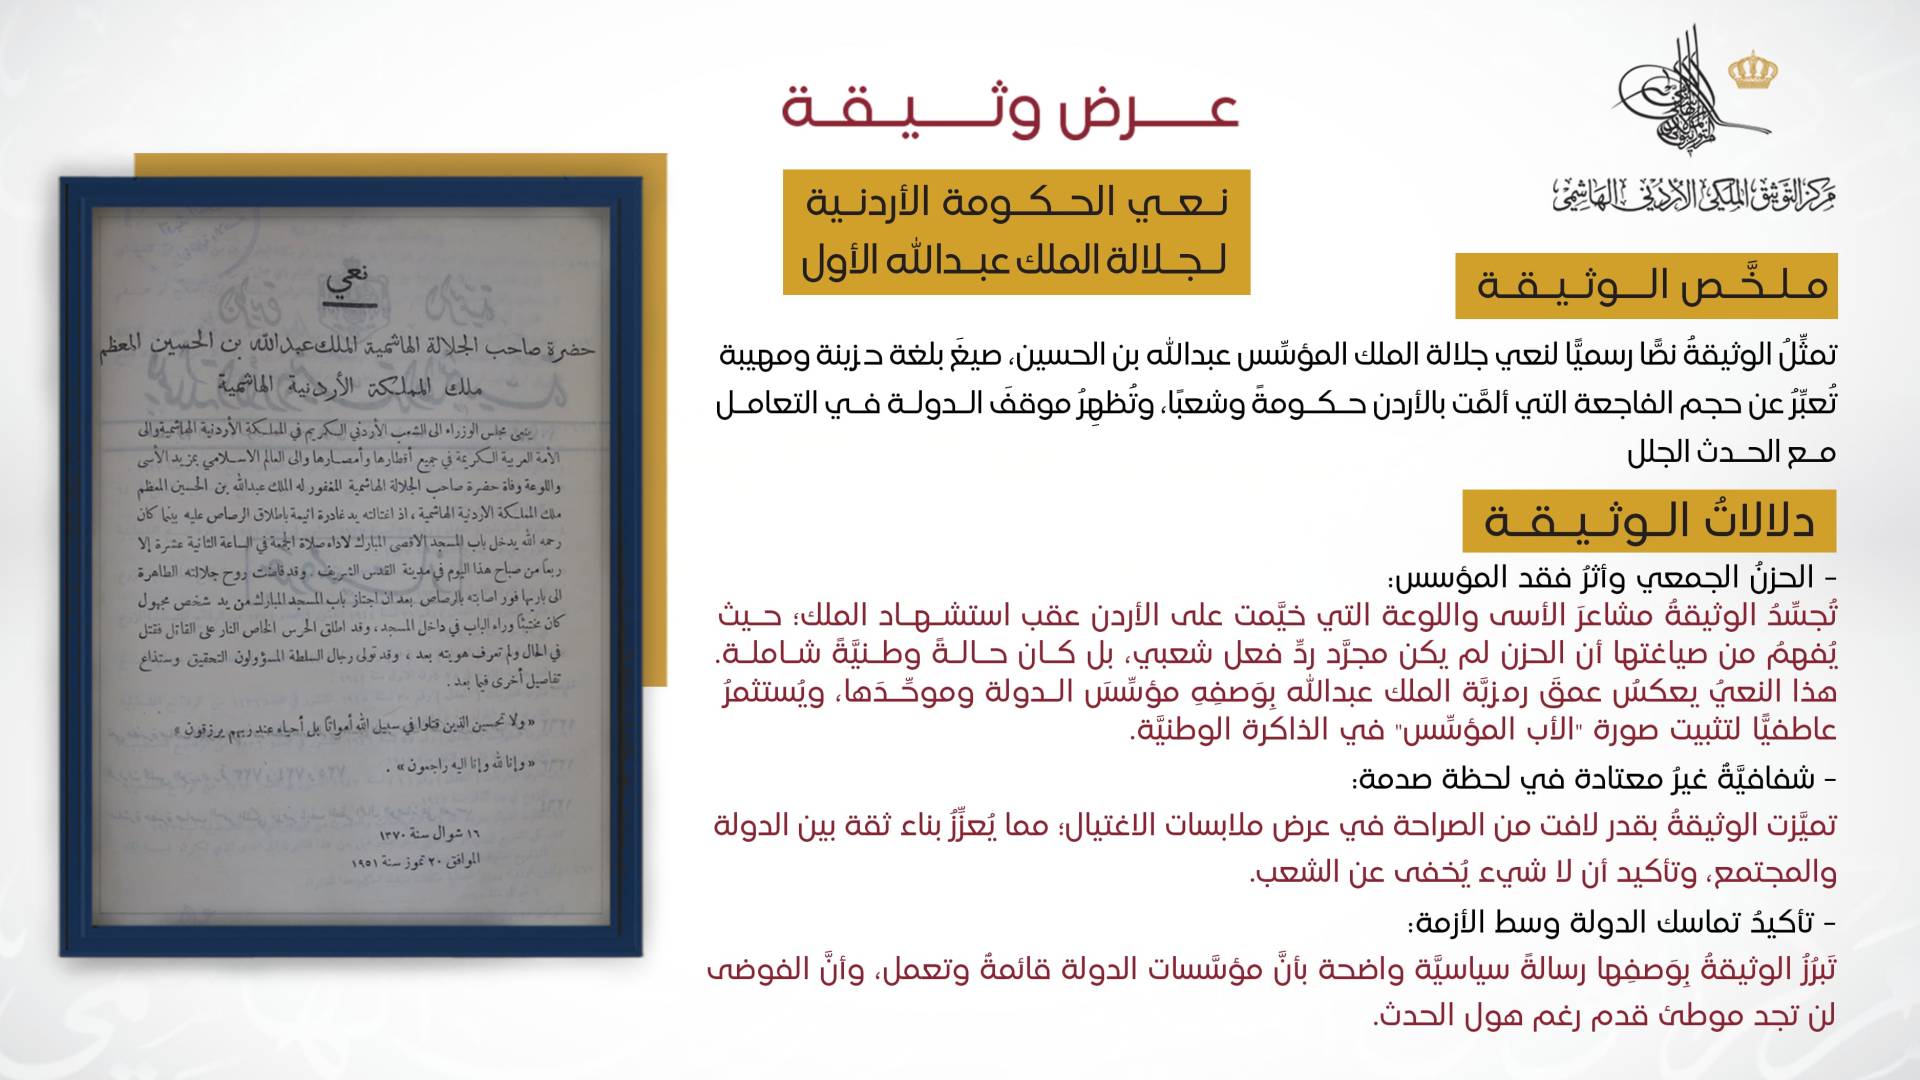 عرض وثيقة
نعي الحكومة الأردنية
لجلالة الملك عبدالله الأول
مركز التوثيق الملكي الأردني الهاشمي
ملخَّص الوثيقة
تمثِّلُ الوثيقةُ نصًّا رسميًّا لنعي جلالة الملك المؤسِّس عبدالله بن الحسين، صيغَ بلغة حزينة ومهيبة
تُعبِّرُ عن حجم الفاجعة التي ألمَّت بالأردن حكومةً وشعبًا، وتُظهِرُ موقفَ الدولة في التعامل
مع الحدث الجلل
دلالاتُ الوثيقة
- الحزنُ الجمعي وأثرُ فقد المؤسس:
تُجسِّدُ الوثيقةُ مشاعرَ الأسى واللوعة التي خيَّمت على الأردن عقب استشهاد الملك؛ حيث
يُفهمُ من صياغتها أن الحزن لم يكن مجرَّد ردِّ فعل شعبي، بل كان حالةً وطنيَّةً شاملة.
هذا النعيُ يعكسُ عمقَ رمزيَّة الملك عبدالله بِوَصفِهِ مؤسِّسَ الدولة وموحِّدَها، ويُستثمرُ
عاطفيًّا لتثبيت صورة "الأب المؤسِّس" في الذاكرة الوطنيَّة.
- شفافيَّةٌ غيرُ معتادة في لحظة صدمة:
تميَّزت الوثيقةُ بقدر لافت من الصراحة في عرض ملابسات الاغتيال؛ مما يُعزِّزُ بناء ثقة بين الدولة
والمجتمع، وتأكيد أن لا شيء يُخفى عن الشعب.
- تأكيدُ تماسك الدولة وسط الأزمة:
تَبرُزُ الوثيقةُ بِوَصفِها رسالةً سياسيَّة واضحة بأنَّ مؤسَّسات الدولة قائمةٌ وتعمل، وأنَّ الفوضى
لن تجد موطئ قدم رغم هول الحدث.
نعي
حضرة صاحب الجلالة الهاشمية الملك عبدالله بن الحسين المعظم
ملك المملكة الأردنية الهاشمية
ينعى مجلس الوزراء الى الشعب الأردني الكريم في المملكة الأردنية الهاشمية والى
الأمة العربية الكريمة في جميع أقطارها وأمصارها والى العالم الاسلامي بمزيد الأسى
واللوعة وفاة حضرة صاحب الجلالة الهاشمية المغفور له الملك عبدالله بن الحسين المعظم
ملك المملكة الاردنية الهاشمية ، اذ اغتالته يد غادرة اثيمة باطلاق الرصاص عليه بينما كان
رحمه الله يدخل باب المسجد الاقصى المبارك لاداء صلاة الجمعة في الساعة الثانية عشرة إلا
ربعاً من صباح هذا اليوم في مدينة القدس الشريف . وقد فاضت روح جلالته الطاهرة
الى بارئها فور اصابته بالرصاص بعد ان اجتاز باب المسجد المبارك من يد شخص مجهول
كان مختبئاً وراء الباب في داخل المسجد ، وقد اطلق الحرس الخاص النار على القاتل فقتل
في الحال ولم تعرف هويته بعد ، وقد تولى رجال السلطة المسؤولون التحقيق وستذاع
تفاصيل أخرى فيما بعد .
« ولا تحسبن الذين قتلوا في سبيل الله أمواتاً بل أحياء عند ربهم يرزقون »
« وإنا لله وإنا اليه راجعون » .
١٦ شوال سنة ١٣٧٠
الموافق ٢٠ تموز سنة ١٩٥١